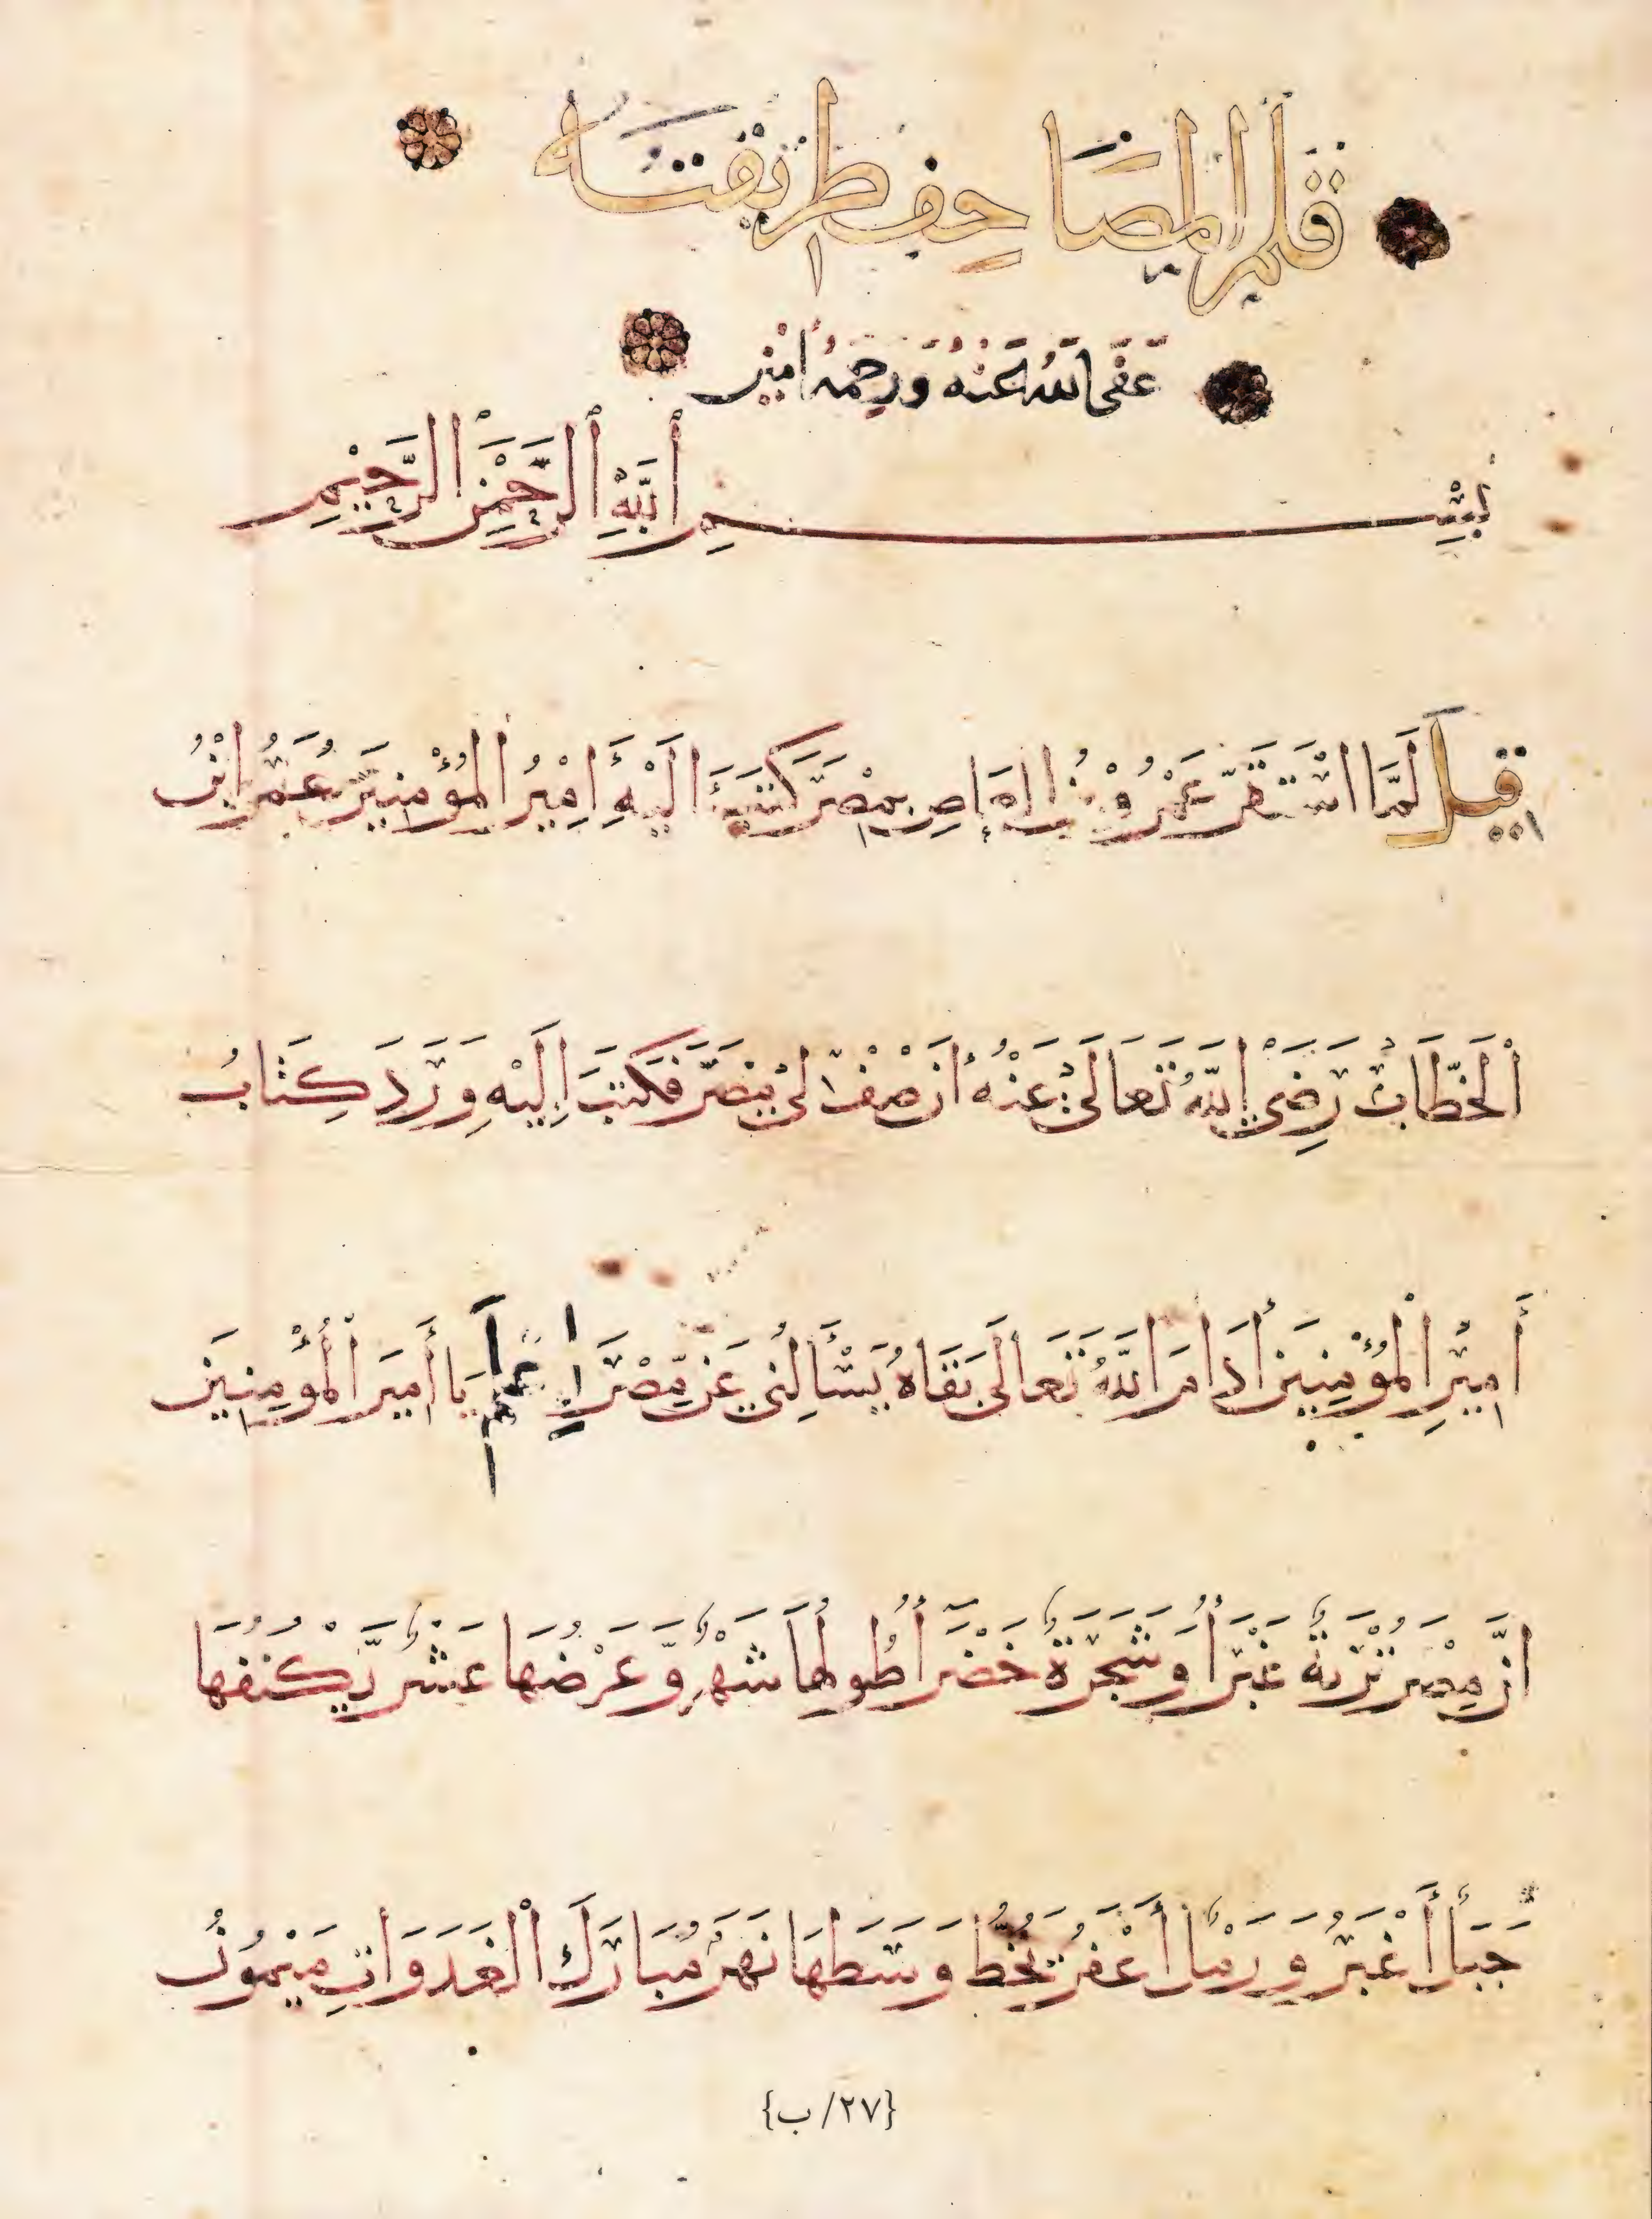 قلم المصاحف طريقته
عفى الله عنه ورحمه امين
بِسْمِ اللَّهِ الرَّحْمَنِ الرَّحِيمِ
قيل لَمَّا اسْتَقَرَّ عَمْرُو بْنُ العَاصِ بِمِصْرَ كَتَبَ الَيْهِ اَمِيْرُ المُؤْمِنِيَنَ عُمَرُ ابْنُ
الْخَطَّابْ رَضِيَ اللَّهُ تَعَالَى عَنْهُ أَنْ صِفْ لِيْ مِصْرَ فَكَتَبَ اِلَيْهِ وَرَدَ كِتَابُ
أَمِيْرِ الْمُؤْمِنِيَن أَدَامَ اللَّهُ تَعَالَى بَقَاهُ يَسْأَلُنِي عَنْ مِصْرَ اِعْلَمْ يَا أَمِيَر الْمُؤْمِنِيَن
اِنَّ مِصْرَ تُرْبَةٌ غَبْرَأ وَشَجَرَةٌ خَضْرَأ طُولُهَا شَهْرٌ وَّعَرْضُهَا عَشْرٌ يَّكْنُفُهَا
جَبَلٌ أَغْبَرُ وَرَمْلٌ أَعْفَرُ يَخُطُّ وَسَطَهَا نَهَرٌ مُبَارَكُ الْغَدَوَاتِ مَيْمُونُ
{٢٧/ب}